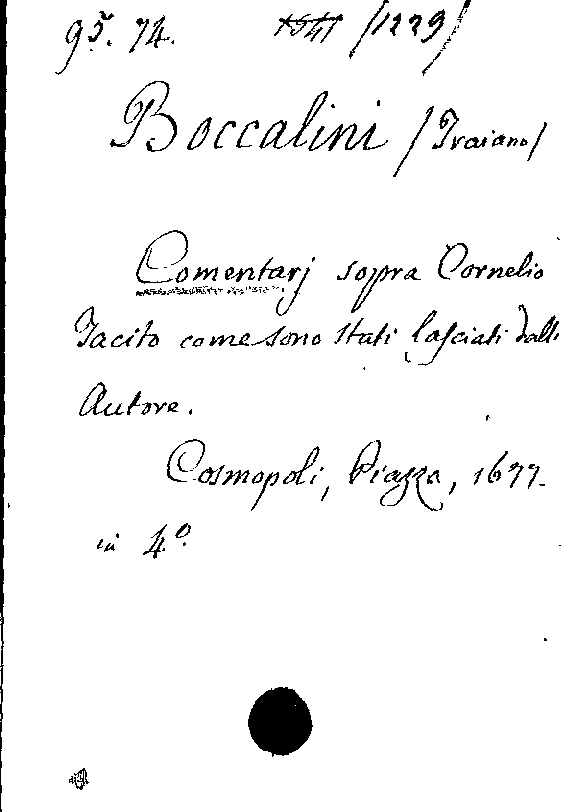 95. 74. 1541 /1229/
Boccalini /Traiano/
Comentarj sopra Cornelio
Tacito come sono stati lasciati dall'
Autore.
Cosmopoli, Piazza, 1677.
in 4.º